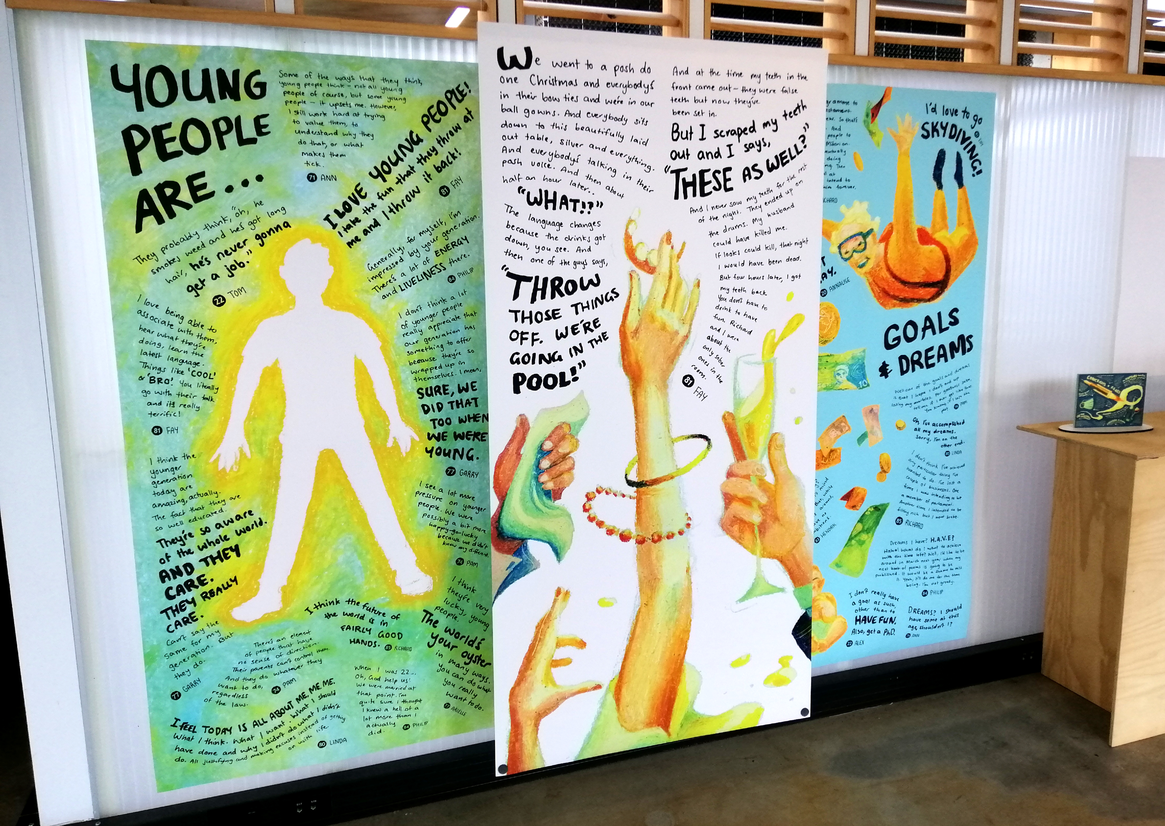 YOUNG
PEOPLE
ARE...
Some of the ways that they think,
young people think - not all young
people of course, but some young
people - it upsets me. However,
I still work hard at trying
to value them, to
understand why they
do that, or what
makes them
tick.
74 ANN
I LOVE YOUNG PEOPLE!
I take the fun that they throw at
me and I throw it back!
81 FAY
They probably think, "oh, he
smokes weed and he's got long
hair, he's never gonna
get a job."
22 TOM
Generally, for myself, I'm
impressed by your generation.
There's a lot of ENERGY
and LIVELINESS there.
PHILIP
I love being able to
associate with them,
hear what they're
doing, learn the
latest language.
Things like 'COOL'
& 'BRO'. You literally
go with their talk
and it's really
terrific!
81 FAY
I don't think a lot
of younger people
really appreciate that
our generation has
something to offer
because they're so
wrapped up in
themselves. I mean,
SURE, WE
DID THAT
TOO WHEN
WE WERE
YOUNG.
77 GARRY
I think the
younger
generation
today are
amazing, actually.
The fact that they are
so well educated.
They're so aware
of the whole world.
AND THEY
CARE.
THEY REALLY
CARE.
Can't say the
same for my
generation. But
they do.
77 GARRY
I see a lot more
pressure on younger
people. We were
possibly a bit more
happy-go-lucky
because we didn't
know any different.
PAM
I think
they're very
lucky, young
people.
The world's
your oyster
in many ways.
You can do what
you really
want to do.
I think the future of
the world is in
FAIRLY GOOD
HANDS.
RICHARD
There's an element
of people that have
no sense of direction.
Their parents can't control them
And they do whatever they
want to do,
regardless
of the law.
PAM
When I was 22...
Oh, God help us!
We were married at
that point. I'm
quite sure I thought
I knew a hell of a
lot more than I
actually
did.
PHILIP
I FEEL TODAY IS ALL ABOUT ME, ME, ME.
What I think. What I want. What I should
have done and why I didn't do what I didn't
do. All justifying and making excuses instead of getting
on with life
80 LINDA
We went to a posh do
one Christmas and everybody's
in their bow ties and we're in our
ball gowns. And everybody sits
down to this beautifully laid
out table, silver and everything.
And everybody's talking in their
posh voice. And then about
half an hour later..
"WHAT!?"
The language changes
because the drinks got
down, you see. And
then one of the guys says,
"THROW
THOSE THINGS
OFF. WE'RE
GOING IN THE
POOL!"
And at the time my teeth in the
front came out - they were false
teeth but now they've
been set in.
But I scraped my teeth
out and I says,
"THESE AS WELL?"
And I never saw my teeth for the rest
of the night. They ended up on
the drums. My husband
could have killed me.
If looks could kill, that night
I would have been dead.
But four hours later, I got
my teeth back.
You don't have to
drink to have
fun. Richard
and I were
about the
only sober
ones in the
room.
81 FAY
I'd love to go
SKYDIVING!
GOALS
& DREAMS
Oh I've accomplished
all my dreams.
Sorry, I'm on the
other side.
LINDA
RICHARD
Dreams I have? H.A.V.E?
PHILIP
I don't really have
a goal as such
other than to
HAVE FUN.
Also, get a PhD.
ALEX
DREAMS? I should
have some at this
age shouldn't I?